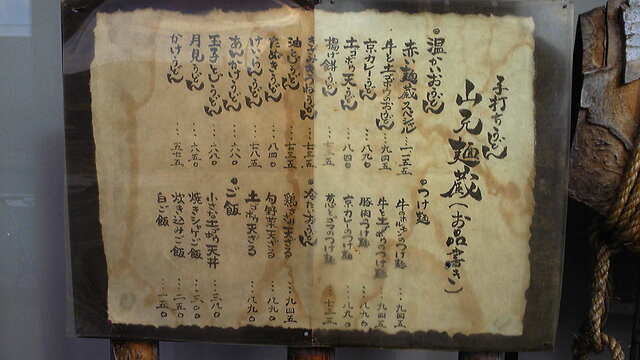 手打ちうどん
山元麺蔵(お品書き)
●温かいおうどん
赤い麺蔵スペシャル…一二五五
牛と土ゴボウのおうどん…九四五
京カレーうどん…八九〇
土ゴボウ天うどん…八四〇
揚げ餅うどん…七三五
きざみきつねうどん…七三五
油かすうどん…七三五
たぬきうどん…八四〇
けいらんうどん…七八五
あんかけうどん…六八〇
玉子とじうどん…六八〇
月見うどん…六八〇
かけうどん…五七五
●つけ麺
牛のホルモンのつけ麺…九四五
牛と土ゴボウのつけ麺…九四五
豚肉のつけ麺…八九〇
京カレーのつけ麺…八九〇
葱とゴマのつけ麺…七三五
●冷たいおうどん
鶏ささみ天ざる…九四五
旬野菜天ざる…八九〇
土ゴボウ天ざる…八九〇
●ご飯
小さな土ゴボウ天丼…三八〇
焼きシャケご飯…三一〇
炊き込みご飯…二五〇
白ご飯…一五〇